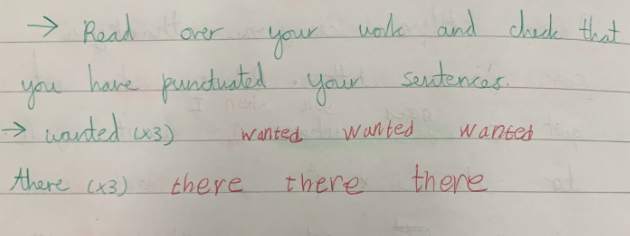 → Read over your work and check that
you have punctuated your sentences.
→ wanted (x3) wanted wanted wanted
there (x3) there there there